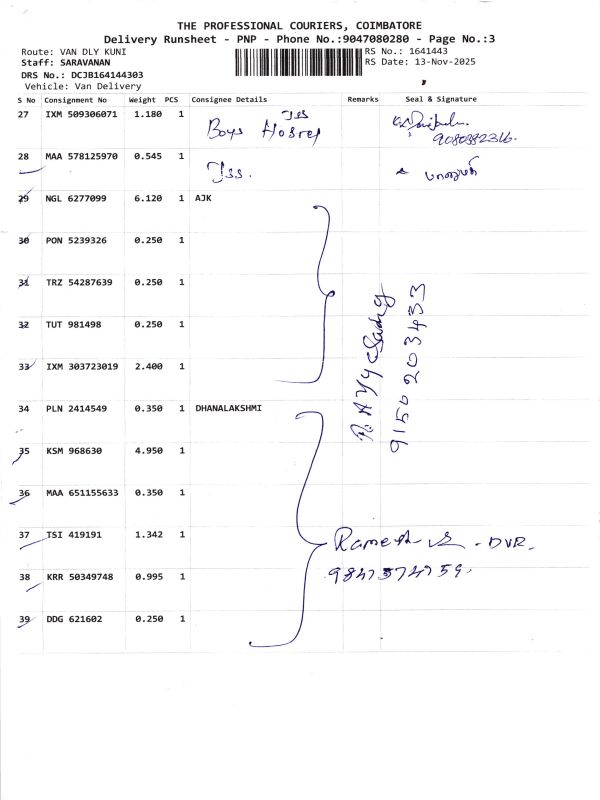 THE PROFESSIONAL COURIERS, COIMBATORE
Delivery Runsheet - PNP - Phone No.:9047080280 - Page No.:3
Route: VAN DLY KUNI
RS No.: 1641443
Staff: SARAVANAN
RS Date: 13-Nov-2025
DRS No.: DCJB164144303
Vehicle: Van Delivery
S No Consignment No Weight PCS Consignee Details Remarks Seal & Signature
27 IXM 509306071 1.180 1 Jss
Boys Hostel
9080382316.
28 MAA 578125970 0.545 1 Jss.
29 NGL 6277099 6.120 1 AJK
30 PON 5239326 0.250 1
31 TRZ 54287639 0.250 1
32 TUT 981498 0.250 1
33 IXM 303723019 2.400 1
9150203433
34 PLN 2414549 0.350 1 DHANALAKSHMI
35 KSM 968630 4.950 1
36 MAA 651155633 0.350 1
37 TSI 419191 1.342 1 Ramesh - DVR.
38 KRR 50349748 0.995 1
39 DDG 621602 0.250 1